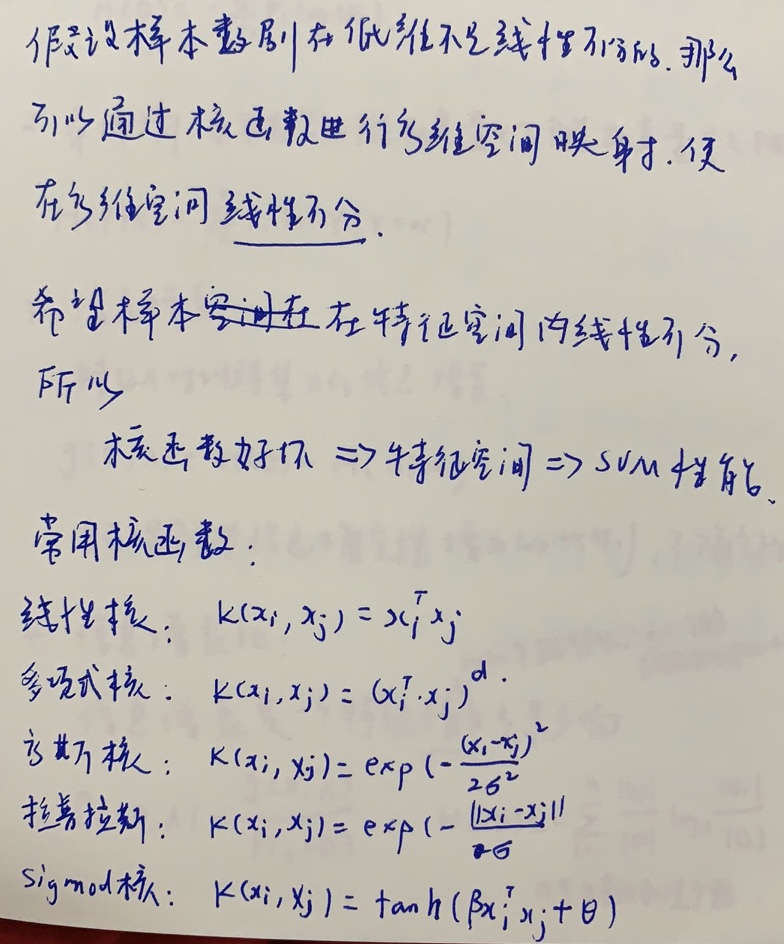 假设样本数据在低维不是线性可分的.那么
可以通过核函数进行高维空间映射.使
在高维空间线性可分.
希望样本空间在在特征空间内线性可分,
所以
核函数好坏 => 特征空间 => SVM 性能.
常用核函数:
线性核: K(xᵢ, xⱼ) = xᵢᵀxⱼ
多项式核: K(xᵢ,xⱼ) = (xᵢᵀ·xⱼ)ᵈ.
高斯核: K(xᵢ, xⱼ) = exp(-(xᵢ-xⱼ)²/2σ²
拉普拉斯: K(xᵢ,xⱼ) = exp(-||xᵢ-xⱼ||/σ
Sigmod核: K(xᵢ, xⱼ) = tanh(βxᵢᵀxⱼ+θ)